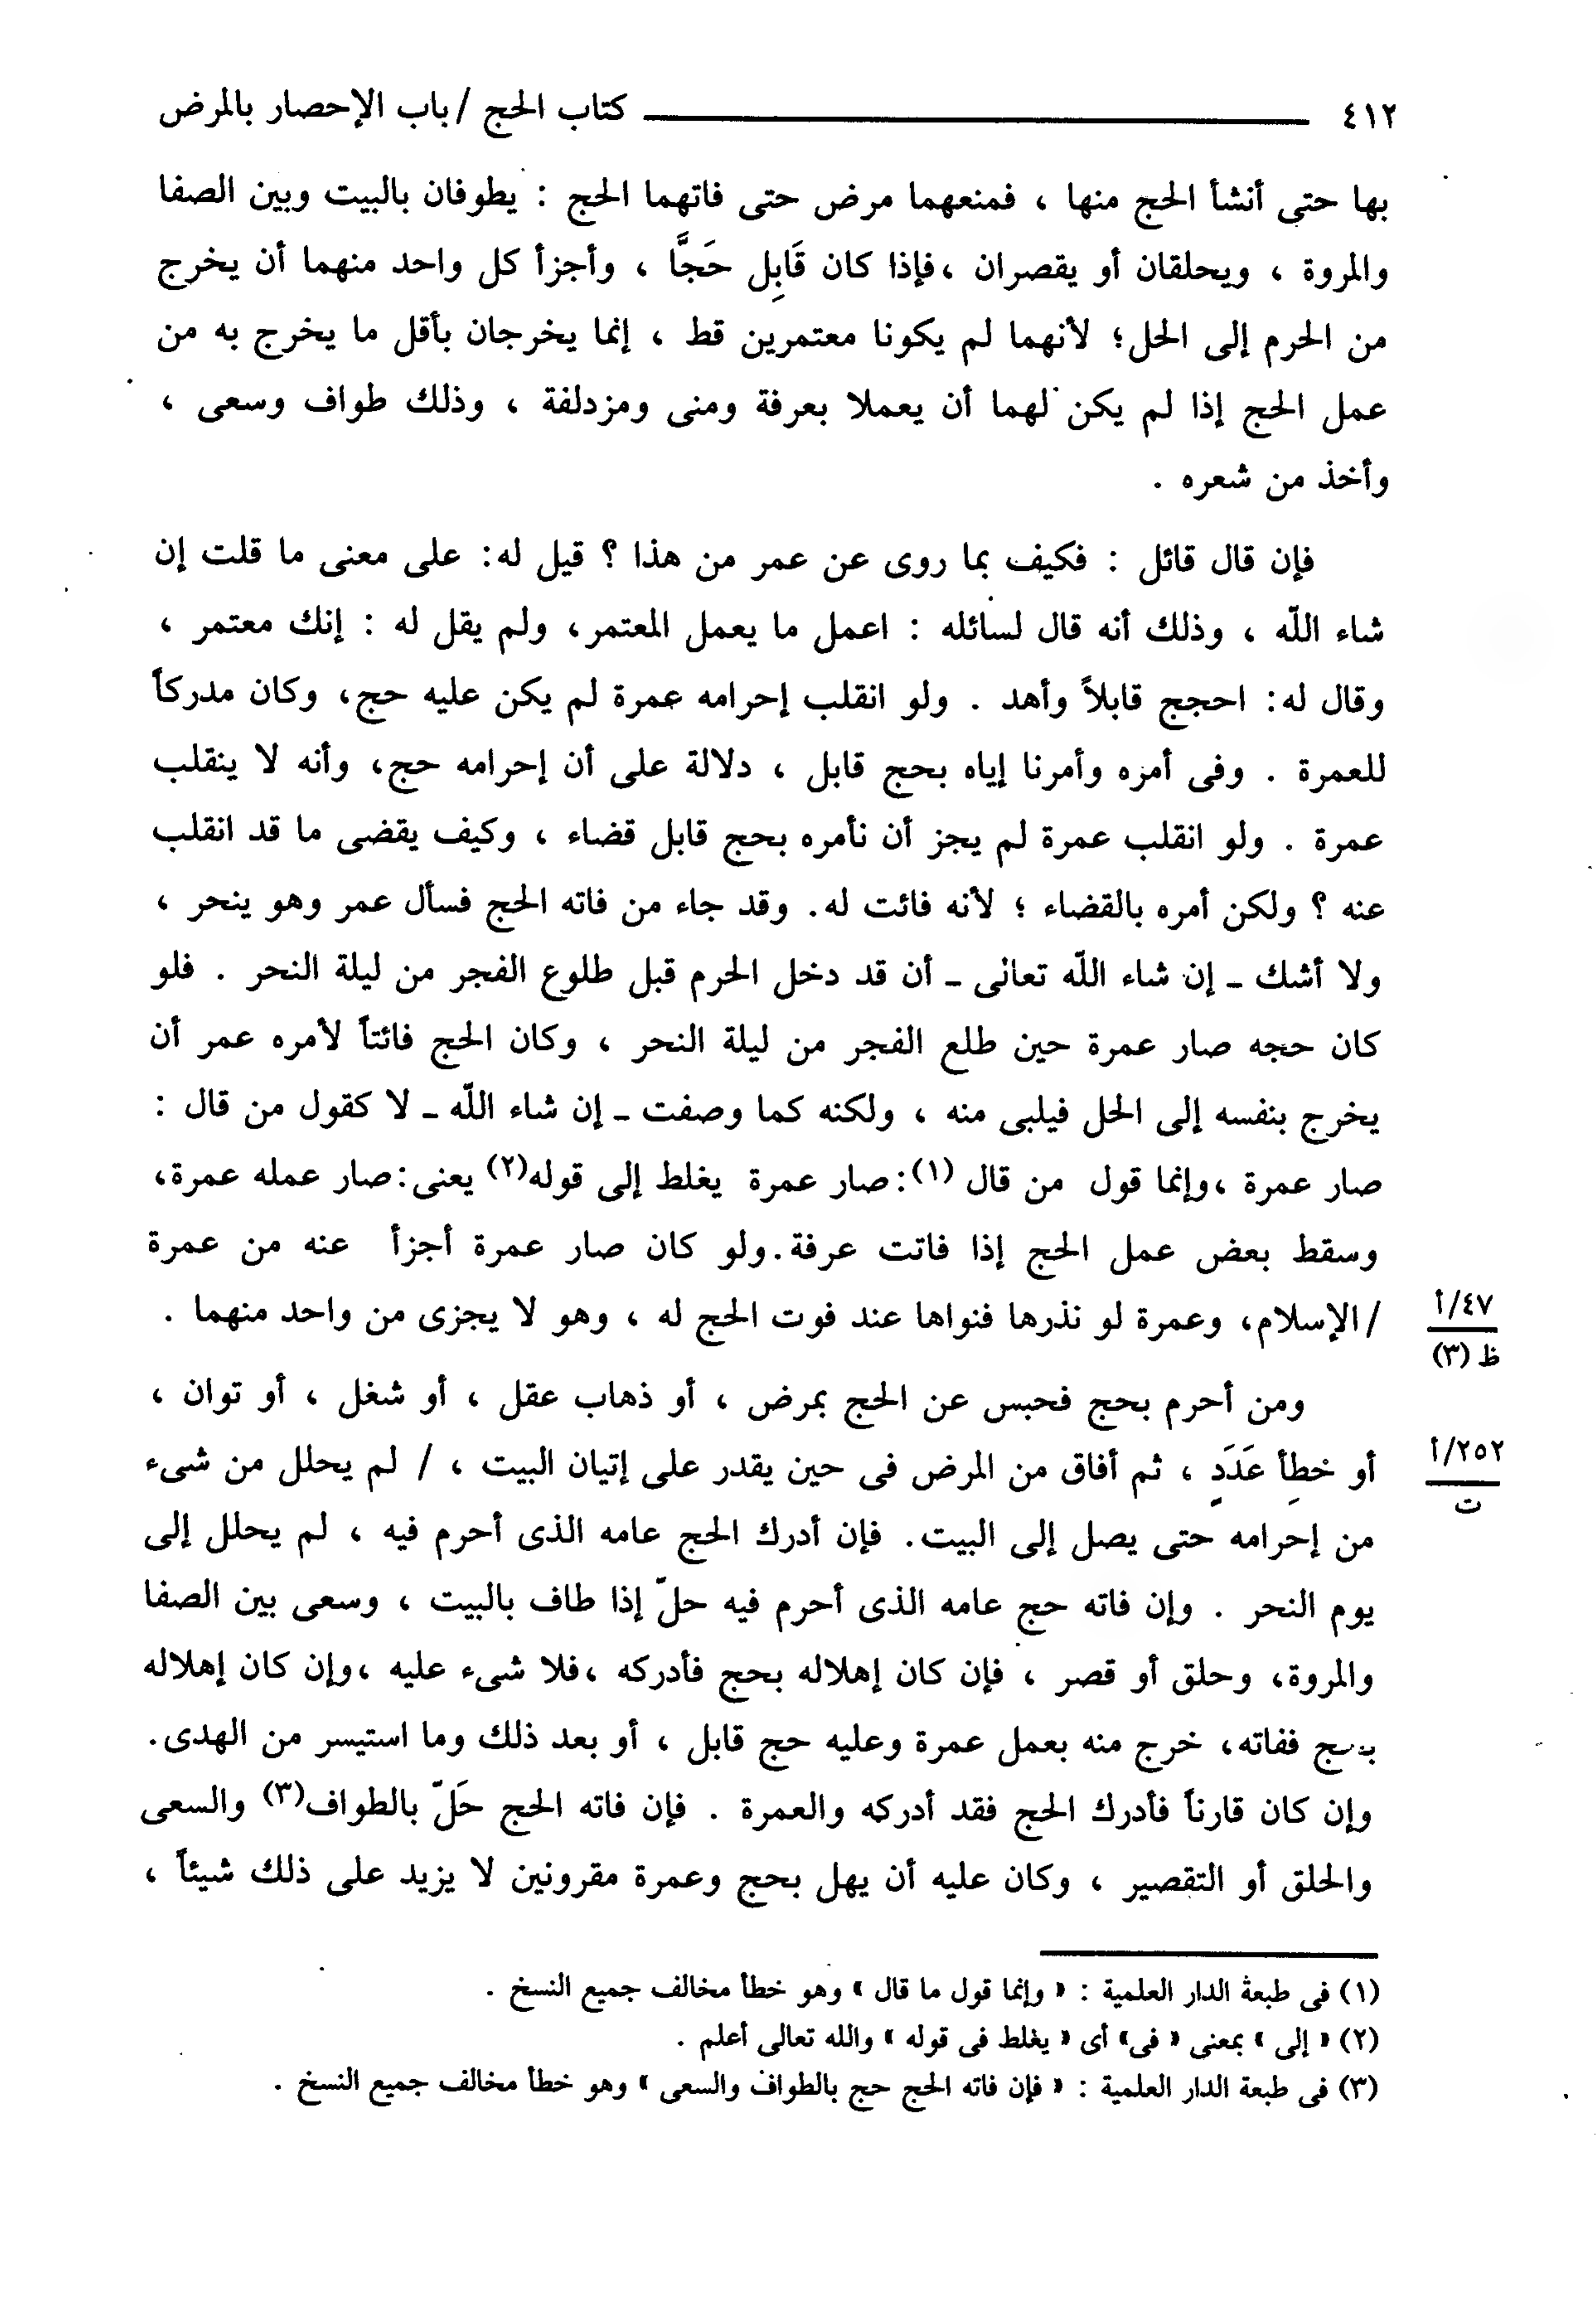 ٤١٢ كتاب الحج / باب الإحصار بالمرض
بها حتى أنشأ الحج منها ، فمنعهما مرض حتى فاتهما الحج : يطوفان بالبيت وبين الصفا
والمروة ، ويحلقان أو يقصران ،فإذا كان قَابِل حَجَّا ، وأجزأ كل واحد منهما أن يخرج
من الحرم إلى الحل؛ لأنهما لم يكونا معتمرين قط ، إنما يخرجان بأقل ما يخرج به من
عمل الحج إذا لم يكن لهما أن يعملا بعرفة ومنى ومزدلفة ، وذلك طواف وسعى ،
وأخذ من شعره .
فإن قال قائل : فكيف بما روى عن عمر من هذا ؟ قيل له: على معنى ما قلت إن
شاء اللّه ، وذلك أنه قال لسائله : اعمل ما يعمل المعتمر، ولم يقل له : إنك معتمر ،
وقال له: احجج قابلاً وأهد . ولو انقلب إحرامه عمرة لم يكن عليه حج، وكان مدركاً
للعمرة . وفى أمره وأمرنا إياه بحج قابل ، دلالة على أن إحرامه حج، وأنه لا ينقلب
عمرة . ولو انقلب عمرة لم يجز أن نأمره بحج قابل قضاء ، وكيف يقضى ما قد انقلب
عنه ؟ ولكن أمره بالقضاء ؛ لأنه فائت له. وقد جاء من فاته الحج فسأل عمر وهو ينحر ،
ولا أشك ـ إن شاء اللّه تعالى ـ أن قد دخل الحرم قبل طلوع الفجر من ليلة النحر . فلو
كان حجه صار عمرة حين طلع الفجر من ليلة النحر ، وكان الحج فائتاً لأمره عمر أن
يخرج بنفسه إلى الحل فيلبى منه ، ولكنه كما وصفت ـ إن شاء اللّه ـ لا كقول من قال :
صار عمرة ،وإنما قول من قال (١):صار عمرة يغلط إلى قوله(٢) يعنى:صار عمله عمرة،
وسقط بعض عمل الحج إذا فاتت عرفة.ولو كان صار عمرة أجزأ عنه من عمرة
/ الإسلام، وعمرة لو نذرها فنواها عند فوت الحج له ، وهو لا يجزى من واحد منهما .
٤٧/أ
ظ (٣)
ومن أحرم بحج فحبس عن الحج بمرض ، أو ذهاب عقل ، أو شغل ، أو توان ،
أو خطأِ عَدَدٍ ، ثم أفاق من المرض فى حين يقدر على إتيان البيت ، / لم يحلل من شىء
٢٥٢/أ
ت
من إحرامه حتى يصل إلى البيت. فإن أدرك الحج عامه الذى أحرم فيه ، لم يحلل إلى
يوم النحر . وإن فاته حج عامه الذى أحرم فيه حلّ إذا طاف بالبيت ، وسعى بين الصفا
والمروة، وحلق أو قصر ، فإن كان إهلاله بحج فأدركه ،فلا شىء عليه ،وإن كان إهلاله
بحج ففاته، خرج منه بعمل عمرة وعليه حج قابل ، أو بعد ذلك وما استيسر من الهدى.
وإن كان قارناً فأدرك الحج فقد أدركه والعمرة . فإن فاته الحج حَلّ بالطواف(٣) والسعى
والحلق أو التقصير ، وكان عليه أن يهل بحج وعمرة مقرونين لا يزيد على ذلك شيئاً ،
(١) فى طبعة الدار العلمية : « وإنما قول ما قال » وهو خطأ مخالف جميع النسخ .
(٢) « إلى » بمعنى « فى» أى « يغلط فى قوله » والله تعالى أعلم .
(٣) فى طبعة الدار العلمية : « فإن فاته الحج حج بالطواف والسعى » وهو خطأ مخالف جميع النسخ .